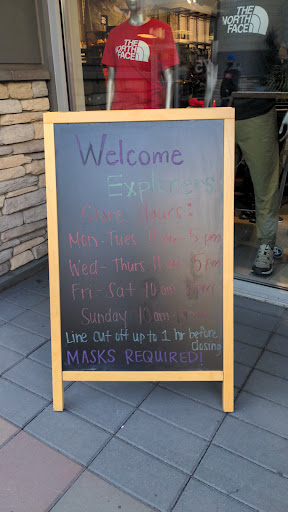 THE
NORTH
FACE
THE
NORTH
FACE
Welcome
Explorers
Store Hours:
Mon-Tues 11am - 5 pm
Wed- Thurs 11am - 5pm
Fri- Sat 10am
Sunday 10am
Line cut off up to 1 hr before
closing
MASKS REQUIRED!